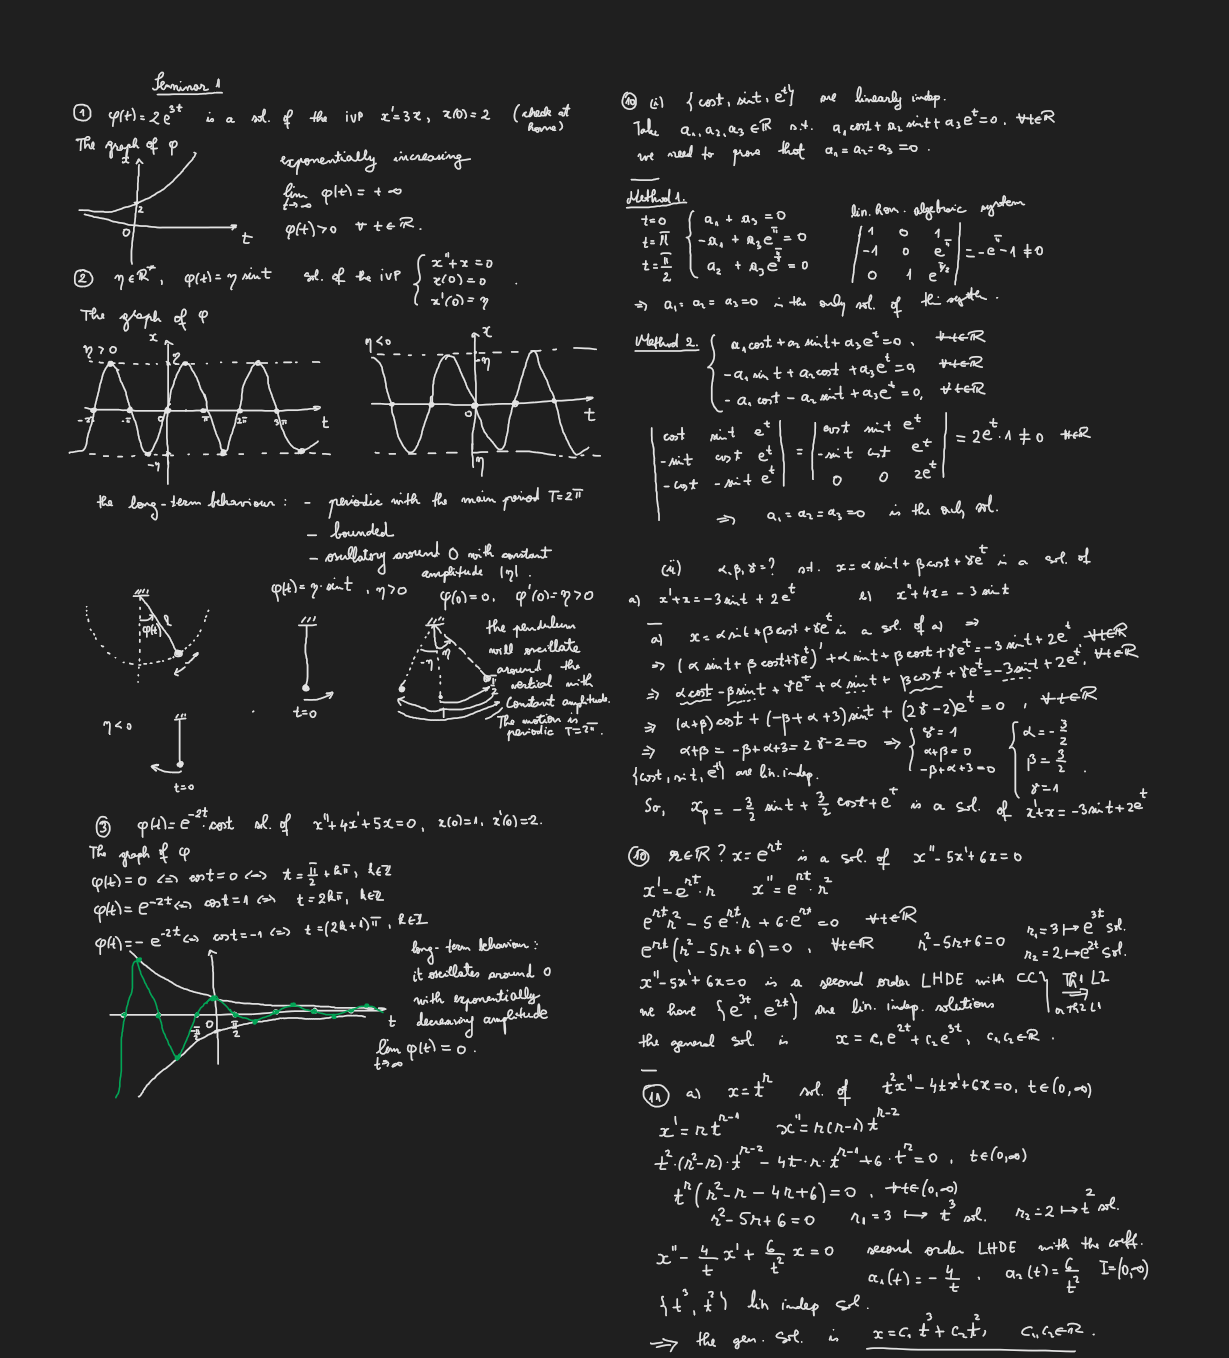 Seminar 1
① φ(t)=2e^{3t} is a sol. of the IVP x'=3x, x(0)=2 (check at home)
The graph of φ
x
2
0
t
exponentially increasing
lim_{t→∞} φ(t) = +∞
φ(t)>0 ∀ t∈ℝ.
② η∈ℝ*, φ(t)=η sint sol. of the IVP { x''+x=0
x(0)=0
x'(0)=η .
The graph of φ
η>0
x
η
-2π -π 0 π 2π 3π t
-η
η<0
x
-η
0
t
η
the long-term behaviour: - periodic with the main period T=2π
- bounded
- oscillatory around 0 with constant
amplitude |η|.
φ(t)=η·sint, η>0 φ(0)=0, φ'(0)=η>0
φ(t) l
t=0
-η η
the pendulum
will oscillate
around the
vertical with
Constant amplitude.
The motion is
periodic T=2π.
η<0
t=0
③ φ(t)=e^{-2t}·cost sol. of x''+4x'+5x=0, x(0)=1, x'(0)=2.
The graph of φ
φ(t)=0 <=> cost=0 <=> t=π/2+kπ, k∈ℤ
φ(t)=e^{-2t} <=> cost=1 <=> t=2kπ, k∈ℤ
φ(t)=-e^{-2t} <=> cost=-1 <=> t=(2k+1)π, k∈ℤ
0 π/2 t
long-term behaviour:
it oscillates around 0
with exponentially
decreasing amplitude
lim_{t→∞} φ(t)=0.
⑩ (i) {cost, sint, e^t} are linearly indep.
Take a₁,a₂,a₃∈ℝ s.t. a₁cost+a₂sint+a₃e^t=0, ∀t∈ℝ
we need to prove that a₁=a₂=a₃=0.
Method 1.
lin. hom. algebraic system
t=0 { a₁+a₃=0 | 1 0 1 |
t=π { -a₁+a₃e^π=0 | -1 0 e^π | = -e^π-1≠0
t=π/2 { a₂+a₃e^{π/2}=0 | 0 1 e^{π/2} |
=> a₁=a₂=a₃=0 is the only sol. of this system.
Method 2. { a₁cost+a₂sint+a₃e^t=0, ∀t∈ℝ
-a₁sint+a₂cost+a₃e^t=0, ∀t∈ℝ
-a₁cost-a₂sint+a₃e^t=0, ∀t∈ℝ
| cost sint e^t | | cost sint e^t |
| -sint cost e^t | = | -sint cost e^t | = 2e^t·1≠0 ∀t∈ℝ
| -cost -sint e^t | | 0 0 2e^t |
=> a₁=a₂=a₃=0 is the only sol.
(ii) α,β,γ=? s.t. x=αsint+βcost+γe^t is a sol. of
a) x'+x=-3sint+2e^t b) x''+4x=-3sint
a) x=αsint+βcost+γe^t is a sol. of a) =>
=> (αsint+βcost+γe^t)'+αsint+βcost+γe^t=-3sint+2e^t ∀t∈ℝ
=> αcost-βsint+γe^t+αsint+βcost+γe^t=-3sint+2e^t, ∀t∈ℝ
=> (α+β)cost+(-β+α+3)sint+(2γ-2)e^t=0, ∀t∈ℝ
=> α+β=-β+α+3=2γ-2=0 => { γ=1
α+β=0
-β+α+3=0
{ α=-3/2
β=3/2
γ=1 .
{cost, sint, e^t} are lin. indep.
So, x_p=-3/2 sint+3/2 cost+e^t is a sol. of x'+x=-3sint+2e^t
⑩ r∈ℝ? x=e^{rt} is a sol. of x''-5x'+6x=0
x'=e^{rt}·r x''=e^{rt}·r²
e^{rt}r²-5e^{rt}·r+6·e^{rt}=0 ∀t∈ℝ
e^{rt}(r²-5r+6)=0, ∀t∈ℝ r²-5r+6=0 r₁=3↦e^{3t} sol.
r₂=2↦e^{2t} sol.
x''-5x'+6x=0 is a second order LHDE with CC } Th1 L2
we have {e^{3t}, e^{2t}} are lin. indep. solutions => Th2 L1
the general sol. is x=c₁e^{2t}+c₂e^{3t}, c₁,c₂∈ℝ.
⑪ a) x=t^r sol. of t²x''-4tx'+6x=0, t∈(0,∞)
x'=rt^{r-1} x''=r(r-1)t^{r-2}
t²·(r²-r)·t^{r-2}-4t·r·t^{r-1}+6·t^r=0, t∈(0,∞)
t^r(r²-r-4r+6)=0, ∀t∈(0,∞)
r²-5r+6=0 r₁=3↦t³ sol. r₂=2↦t² sol.
x''-4/t x'+6/t² x=0 second order LHDE with the coeff.
a₁(t)=-4/t, a₂(t)=6/t² I=(0,∞)
{t³, t²} lin indep sol.
=> the gen. sol. is x=c₁t³+c₂t², c₁,c₂∈ℝ.